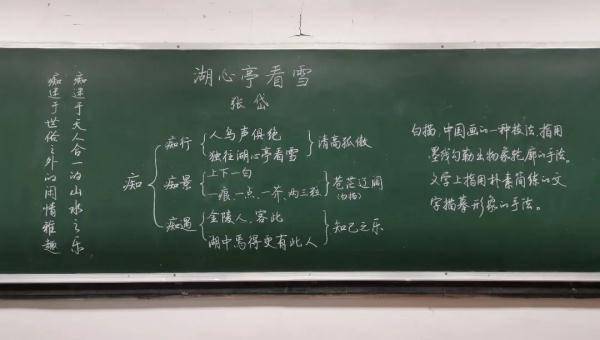 湖心亭看雪
张岱
痴迷于天人合一的山水之乐
痴迷于世俗之外的闲情雅趣
痴
痴行
人鸟声俱绝
独往湖心亭看雪
清高孤傲
痴景
上下一白
一痕、一点、一芥、两三粒
苍茫辽阔
(白描)
痴遇
金陵人,客此
湖中焉得更有此人
知己之乐
白描,中国画的一种技法,指用
墨线勾勒出物象轮廓的手法。
文学上指用朴素简练的文
字描摹形象的手法。